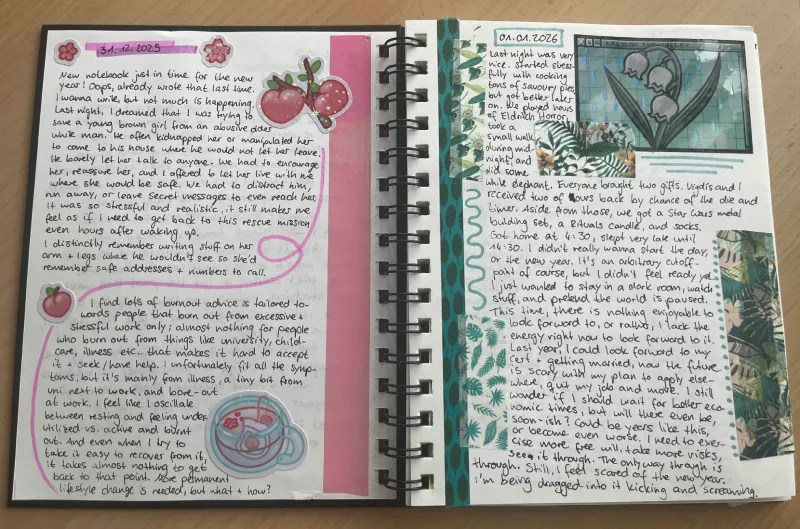 31.12.2025
New notebook just in time for the new
year! Oops, already wrote that last time.
I wanna write, but not much is happening.
Last night, I dreamed that I was trying to
save a young brown girl from an abusive older
white man. He often kidnapped her or manipulated her
to come to his house where he would not let her leave.
He barely let her talk to anyone. We had to encourage
her, reassure her, and I offered to let her live with me
where she would be safe. We had to distract him,
run away, or leave secret messages to even reach her.
It was so stressful and realistic, it still makes me
feel as if I need to get back to this rescue mission
even hours after waking up.
I distinctly remember writing stuff on her
arm + legs where he wouldn't see so she'd
remember safe addresses + numbers to call.
I find lots of burnout advice is tailored to-
words people that burn out from excessive +
stressful work only; almost nothing for people
who burn out from things like university, child-
care, illness etc.. that makes it hard to accept
it + seek/have help. I unfortunately fit all the symp-
toms, but it's mainly from illness, a tiny bit from
uni next to work, and bore-out
at work. I feel like I oscillate
between resting and feeling under
utilized vs. active and burnt
out. And even when I try to
take it easy to recover from it,
it takes almost nothing to get
back to that point. More permanent
lifestyle change is needed, but what + how?
01.01.2026
Last night was very
nice. Started stress-
fully with cooking
tons of savoury pies,
but got better later
on. We played hours
of Eldritch Horror,
took a
small walk
during mid-
night, and
did some
white elephant. Everyone brought two gifts. Vigdis and I
received two of ours back by chance of the die and
timer. Aside from those, we got a Star Wars metal
building set, a Rituals candle, and socks.
Got home at 4:30, slept very late until
14:30. I didn't really wanna start the day,
or the new year. It's an arbitrary cutoff-
point of course, but I didn't feel ready yet.
I just wanted to stay in a dark room, watch
stuff, and pretend the world is paused.
This time, there is nothing enjoyable to
look forward to, or rather, I lack the
energy right now to look forward to it.
Last year, I could look forward to my
cert + getting married, now the future
is scary with my plan to apply else-
where, quit my job and move. I still
wonder if I should wait for better eco-
nomic times, but will there even be,
soon-ish? Could be years like this,
or become even worse. I need to exer-
cise more free will, take more risks,
see it through. The only way through is
through. Still, I feel scared of the new year.
I'm being dragged into it kicking and screaming.